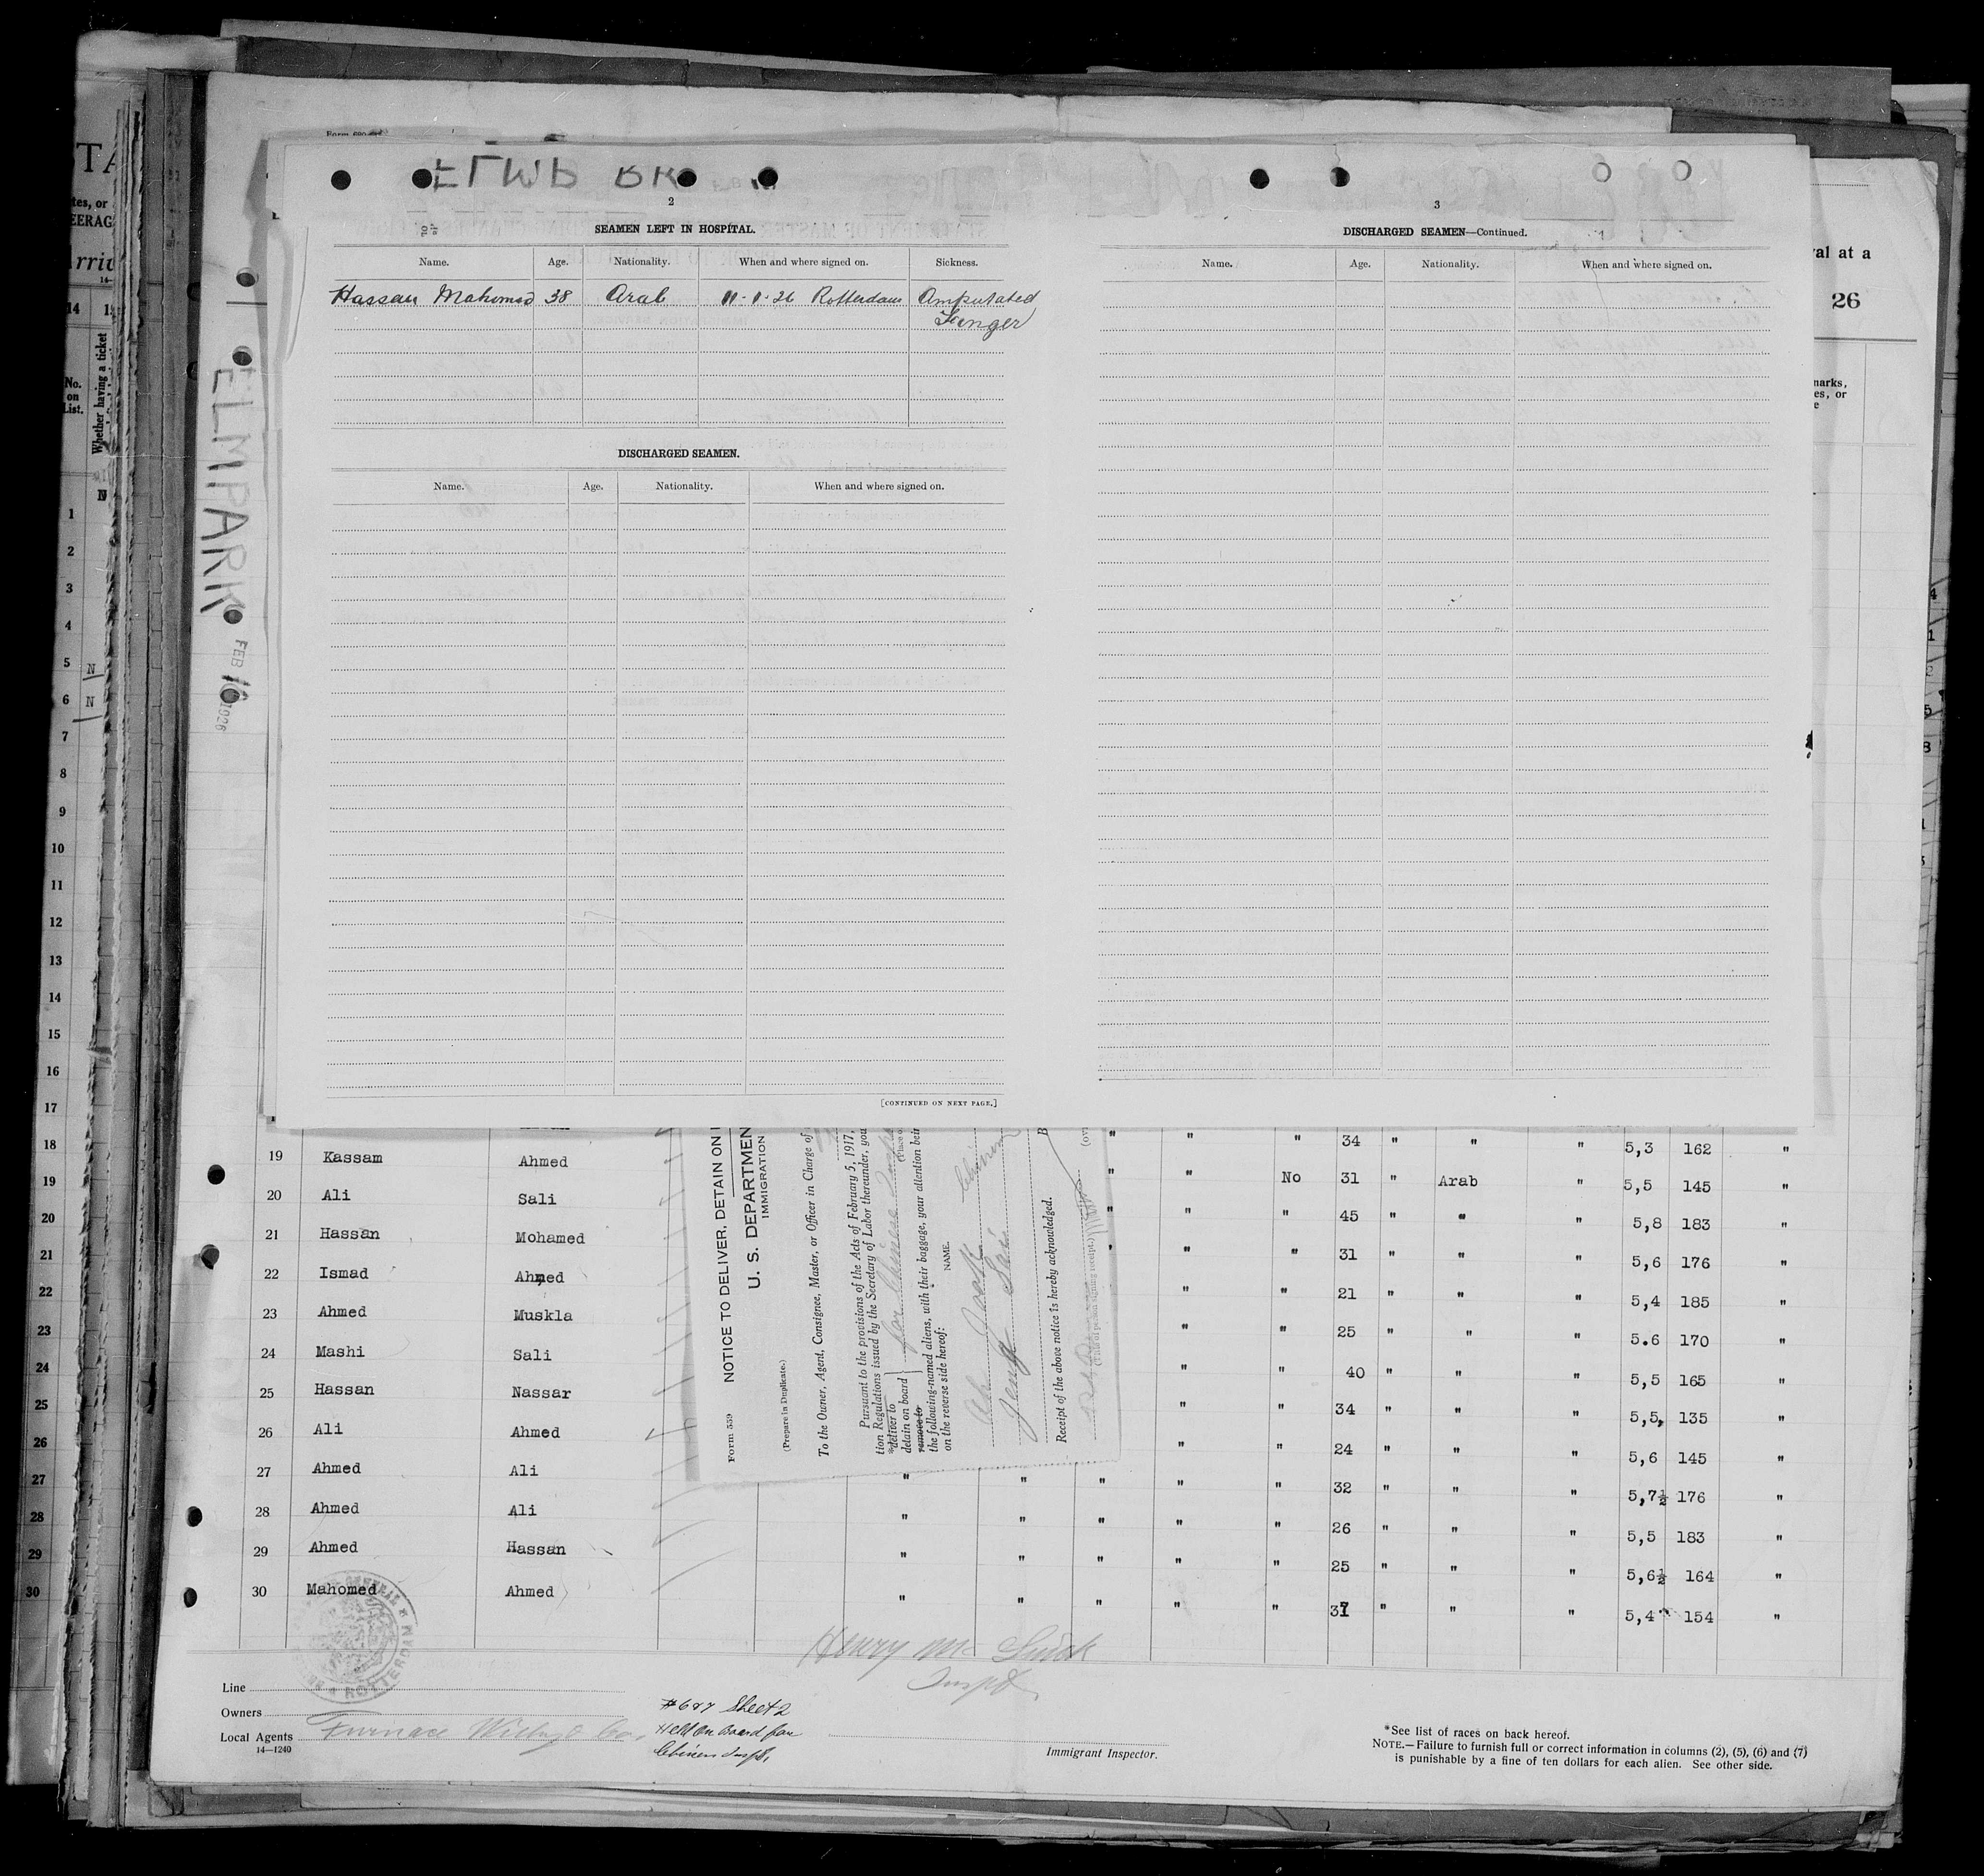 2
SEAMEN LEFT IN HOSPITAL.
Name. Age. Nationality. When and where signed on. Sickness.
Hassan Mahomad 38 Arab 11-1-26 Rotterdam Amputated
Finger
DISCHARGED SEAMEN.
Name. Age. Nationality. When and where signed on.
[CONTINUED ON NEXT PAGE.]
3
DISCHARGED SEAMEN—Continued.
Name. Age. Nationality. When and where signed on.
ELMPARK
FEB 16 1926
val at a
26
marks,
es, or
tes, or
EERAG
14
No.
on
List.
Whether having a ticket
1
2
3
4
5 N
6 N
7
8
9
10
11
12
13
14
15
16
17
18
19
20
21
22
23
24
25
26
27
28
29
30
" " " 34 " " " 5,3 162 "
19 Kassam Ahmed " " No 31 " Arab " 5,5 145 "
20 Ali Sali " " " 45 " " " 5,8 183 "
21 Hassan Mohamed " " " 31 " " " 5,6 176 "
22 Ismad Ahmed " " 21 " " " 5,4 185 "
23 Ahmed Muskla " " 25 " " " 5.6 170 "
24 Mashi Sali " " 40 " " " 5,5 165 "
25 Hassan Nassar " " 34 " " " 5,5, 135 "
26 Ali Ahmed " " 24 " " " 5,6 145 "
27 Ahmed Ali " " " " " 32 " " " 5,7½ 176 "
28 Ahmed Ali " " " " " 26 " " " 5,5 183 "
29 Ahmed Hassan " " " " " 25 " " " 5,6½ 164 "
30 Mahomed Ahmed " " " " " " " " 5,4 154 "
Form 559
NOTICE TO DELIVER, DETAIN ON
U. S. DEPARTMEN
IMMIGRATION
(Prepare in Duplicate.)
To the Owner, Agent, Consignee, Master, or Officer in Charge of
Pursuant to the provisions of the Acts of February 5, 1917,
tion Regulations issued by the Secretary of Labor thereunder, you
*deliver to
detain on board for Chinese
remove to
the following-named aliens, with their baggage, your attention bein
on the reverse side hereof:
NAME.
Receipt of the above notice is hereby acknowledged.
(Title of person signing receipt.)
ROTTERDAM
Line
Owners
Local Agents Furnace Withy & Co.
14—1240
#687 Sheet 2
Held On Board for
Chinese Insp.
Henry Mc
Insp
Immigrant Inspector.
*See list of races on back hereof.
NOTE.—Failure to furnish full or correct information in columns (2), (5), (6) and (7)
is punishable by a fine of ten dollars for each alien. See other side.